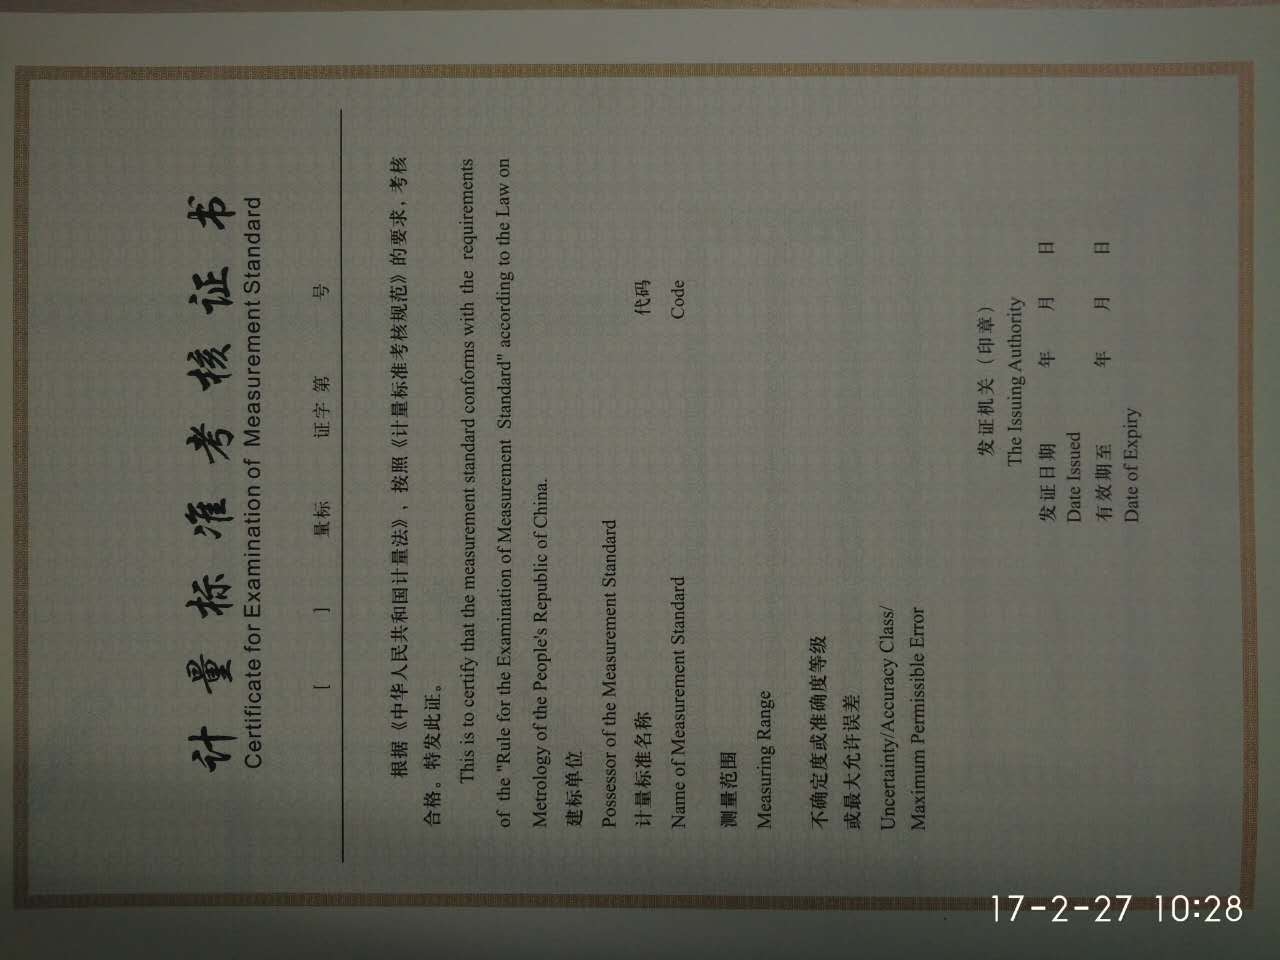 计量标准考核证书
Certificate for Examination of Measurement Standard
[ ] 量标 证字 第 号
根据《中华人民共和国计量法》，按照《计量标准考核规范》的要求，考核
合格。特发此证。
This is to certify that the measurement standard conforms with the requirements
of the "Rule for the Examination of Measurement Standard" according to the Law on
Metrology of the People's Republic of China.
建标单位
Possessor of the Measurement Standard
计量标准名称 代码
Name of Measurement Standard Code
测量范围
Measuring Range
不确定度或准确度等级
或最大允许误差
Uncertainty/Accuracy Class/
Maximum Permissible Error
发证机关（印章）
The Issuing Authority
发证日期 年 月 日
Date Issued
有效期至 年 月 日
Date of Expiry
17-2-27 10:28